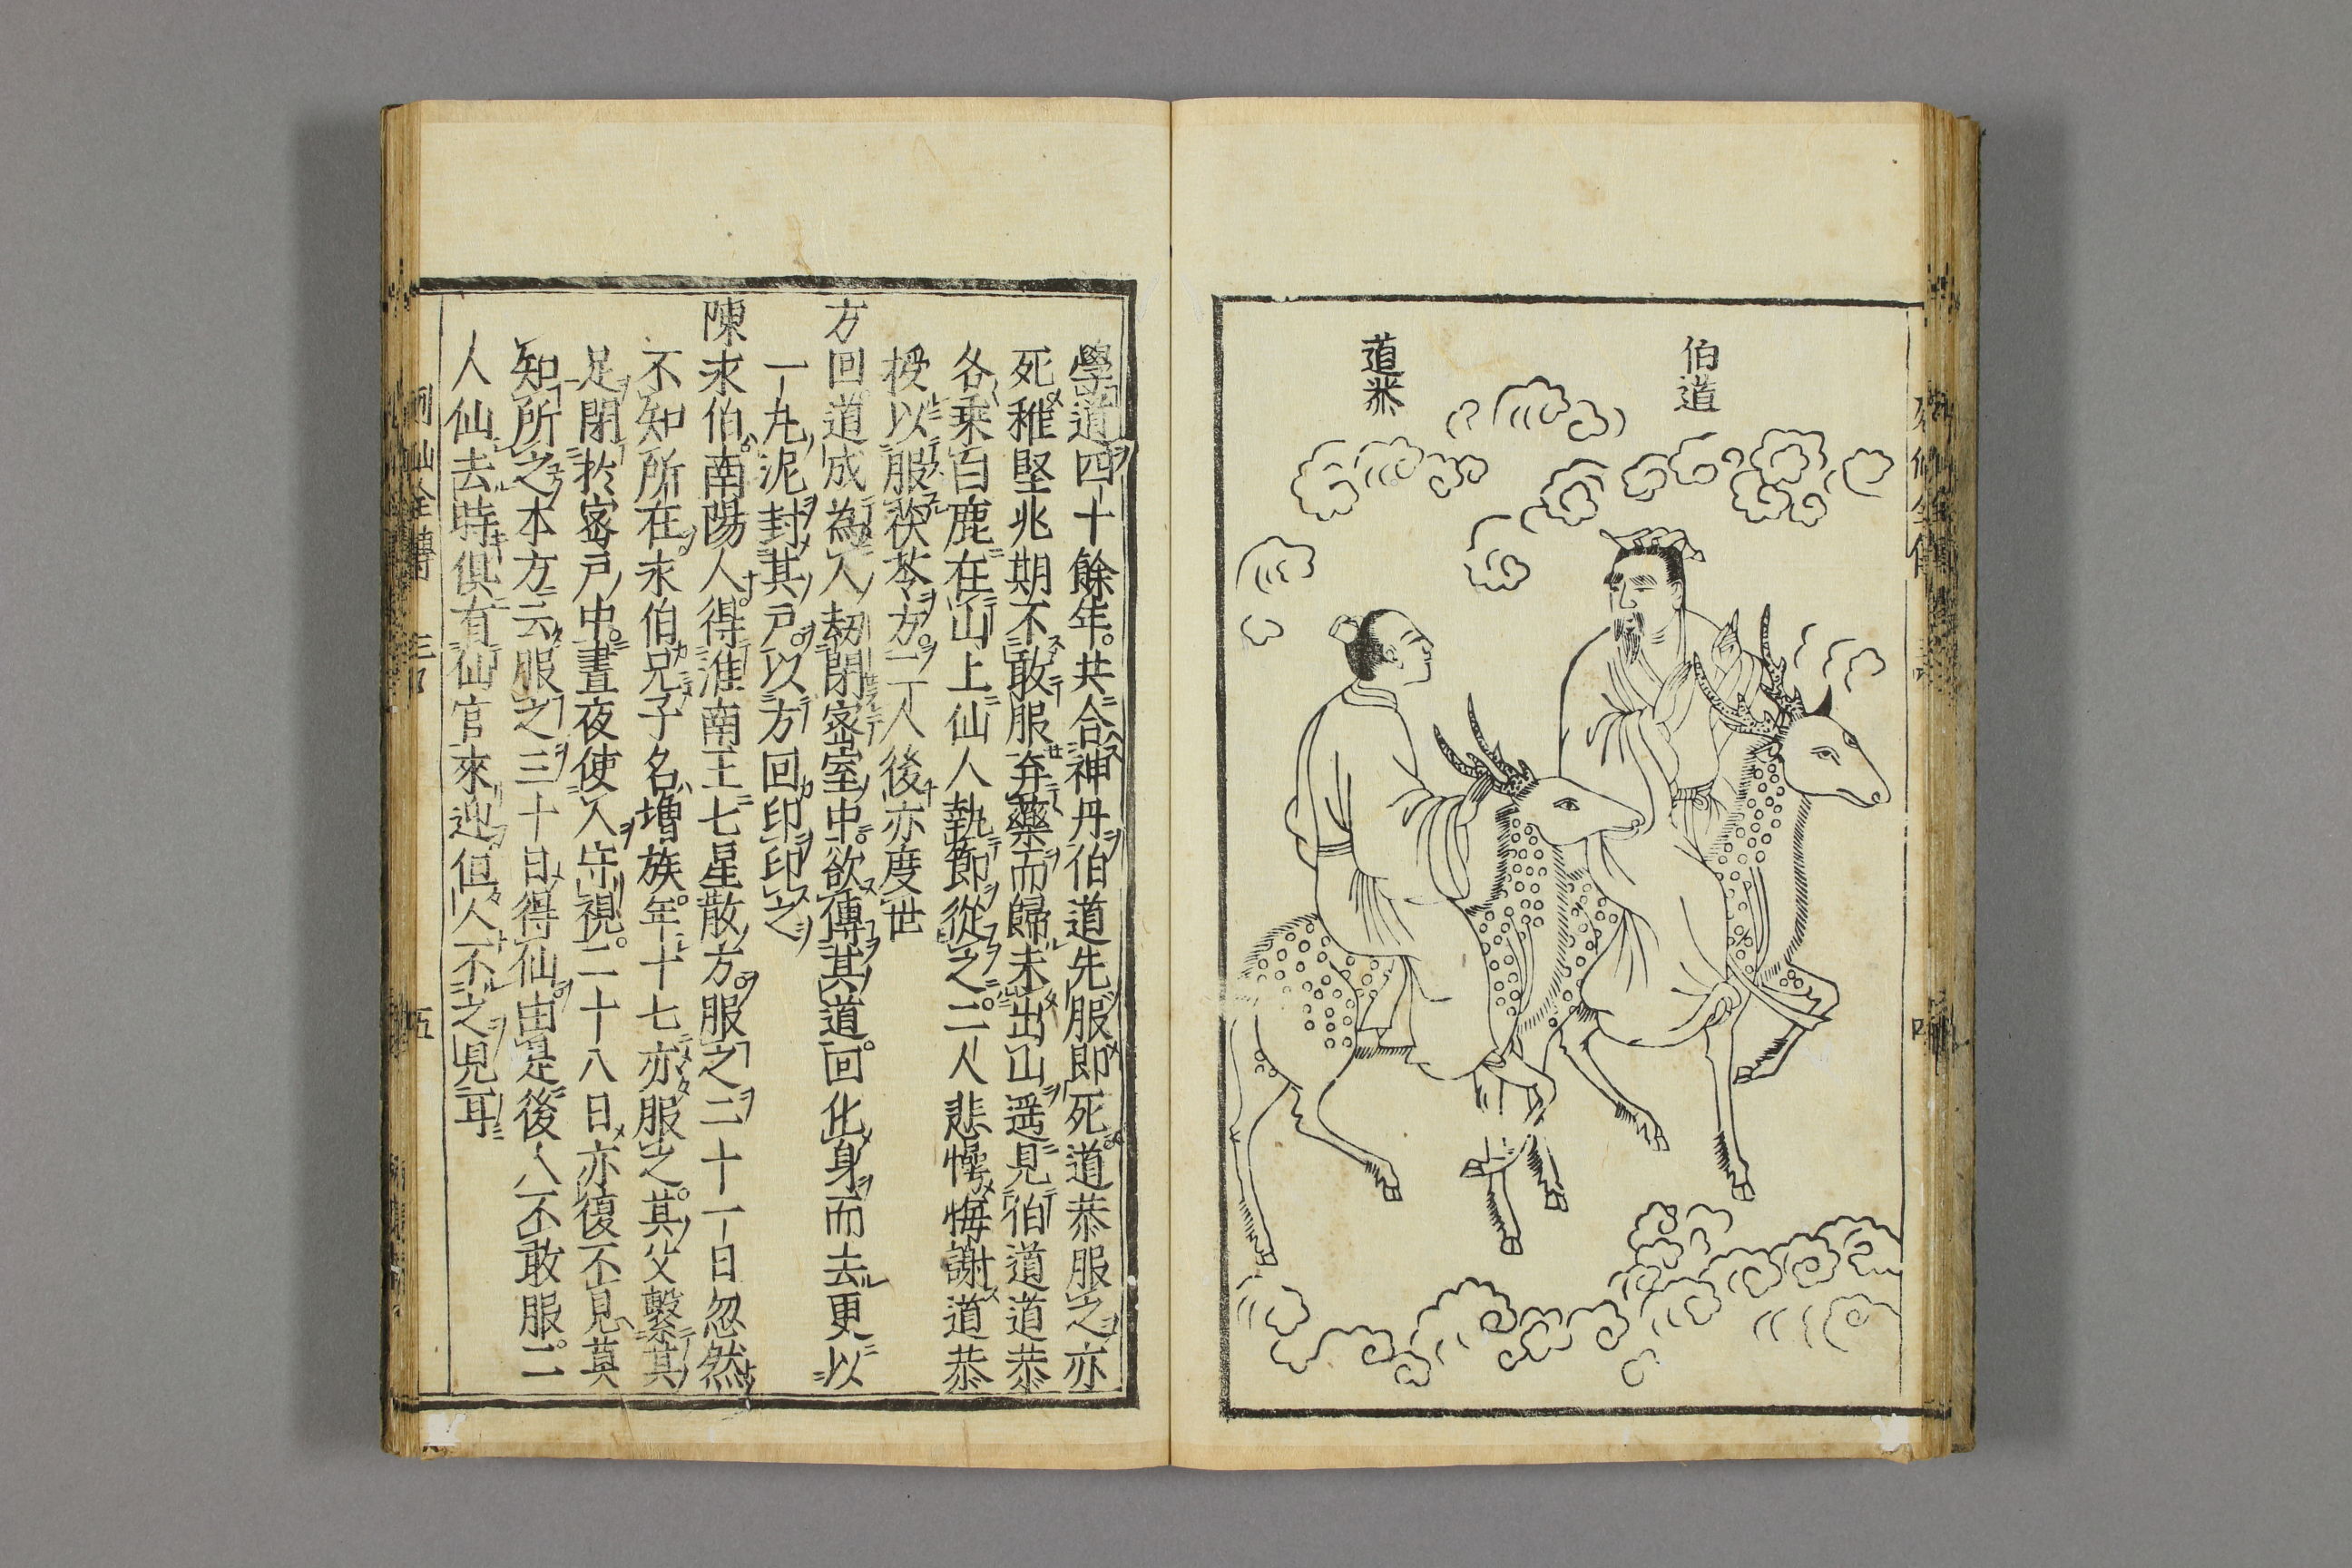 伯道
道恭
學道四十餘年。共合神丹伯道先服即死。道恭服之亦
死稚堅兆期不敢服弃藥而歸未出山遥見伯道道恭
各乘白鹿在山上仙人執節從之。二人悲愕悔謝道恭
授以服茯苓方。二人後亦度世
方回。道成為人劫閉宻室中。欲傳其道。回化身而去更以
一丸泥封其戸。以方回印印之
陳永伯南陽人得淮南王七星散方。服之二十一日忽然
不知所在。永伯兄子名増族。年十七亦服之。其父繫其
足閉於宻戸中。晝夜使人守視。二十八日亦復不見莫
知所之本方云服之三十日得仙。由是後人不敢服。二
人仙去時俱有仙官來迎但人不之見耳
列仙全傳
五